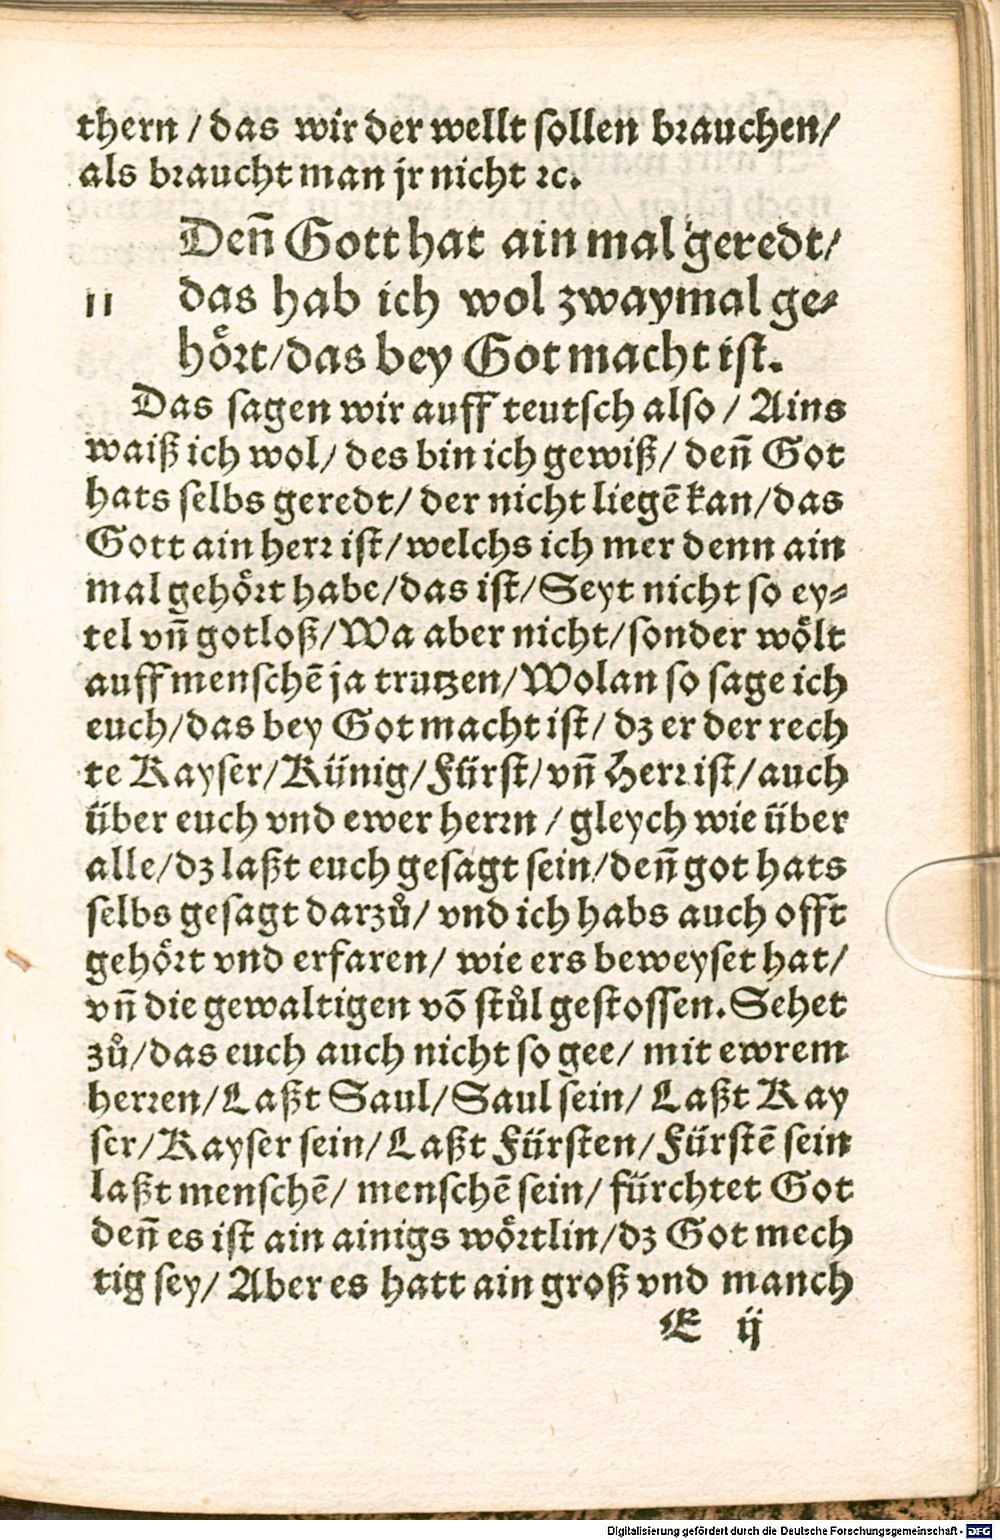 thern / das wir der wellt sollen brauchen/
als braucht man jr nicht ꝛc.
Deñ Gott hat ain mal geredt/
11 das hab ich wol zwaymal ge⸗
hoͤrt/das bey Got macht ist.
Das sagen wir auff teutsch also / Ains
waiß ich wol/ des bin ich gewiß/ deñ Got
hats selbs geredt/ der nicht liegē kan/das
Gott ain herr ist/welchs ich mer denn ain
mal gehoͤrt habe/das ist/Seyt nicht so ey⸗
tel vñ gotloß/Wa aber nicht/sonder woͤlt
auff menschē ja trutzen/Wolan so sage ich
euch/das bey Got macht ist/ dz er der rech
te Kayser/Künig/Fürst/vñ Herr ist/auch
über euch vnd ewer herrn / gleych wie über
alle/dz laßt euch gesagt sein/deñ got hats
selbs gesagt darzuͦ/ vnd ich habs auch offt
gehoͤrt vnd erfaren/ wie ers beweyset hat/
vñ die gewaltigen vō stuͦl gestossen.Sehet
zuͦ/das euch auch nicht so gee/ mit ewrem
herren/Laßt Saul/Saul sein/ Laßt Kay
ser/Kayser sein/Laßt Fürsten/Fürstē sein
laßt menschē/ menschē sein/ fürchtet Got
deñ es ist ain ainigs woͤrtlin/dz Got mech
tig sey/ Aber es hatt ain groß vnd manch
E ij
Digitalisierung gefördert durch die Deutsche Forschungsgemeinschaft - DFG